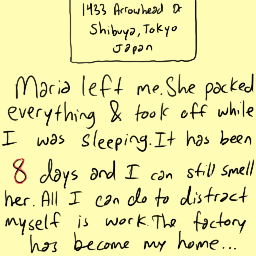 1433 Arrowhead Dr
Shibuya, Tokyo
Japan
Maria left me. She packed
everything & took off while
I was sleeping. It has been
8 days and I can still smell
her. All I can do to distract
myself is work. The factory
has become my home...